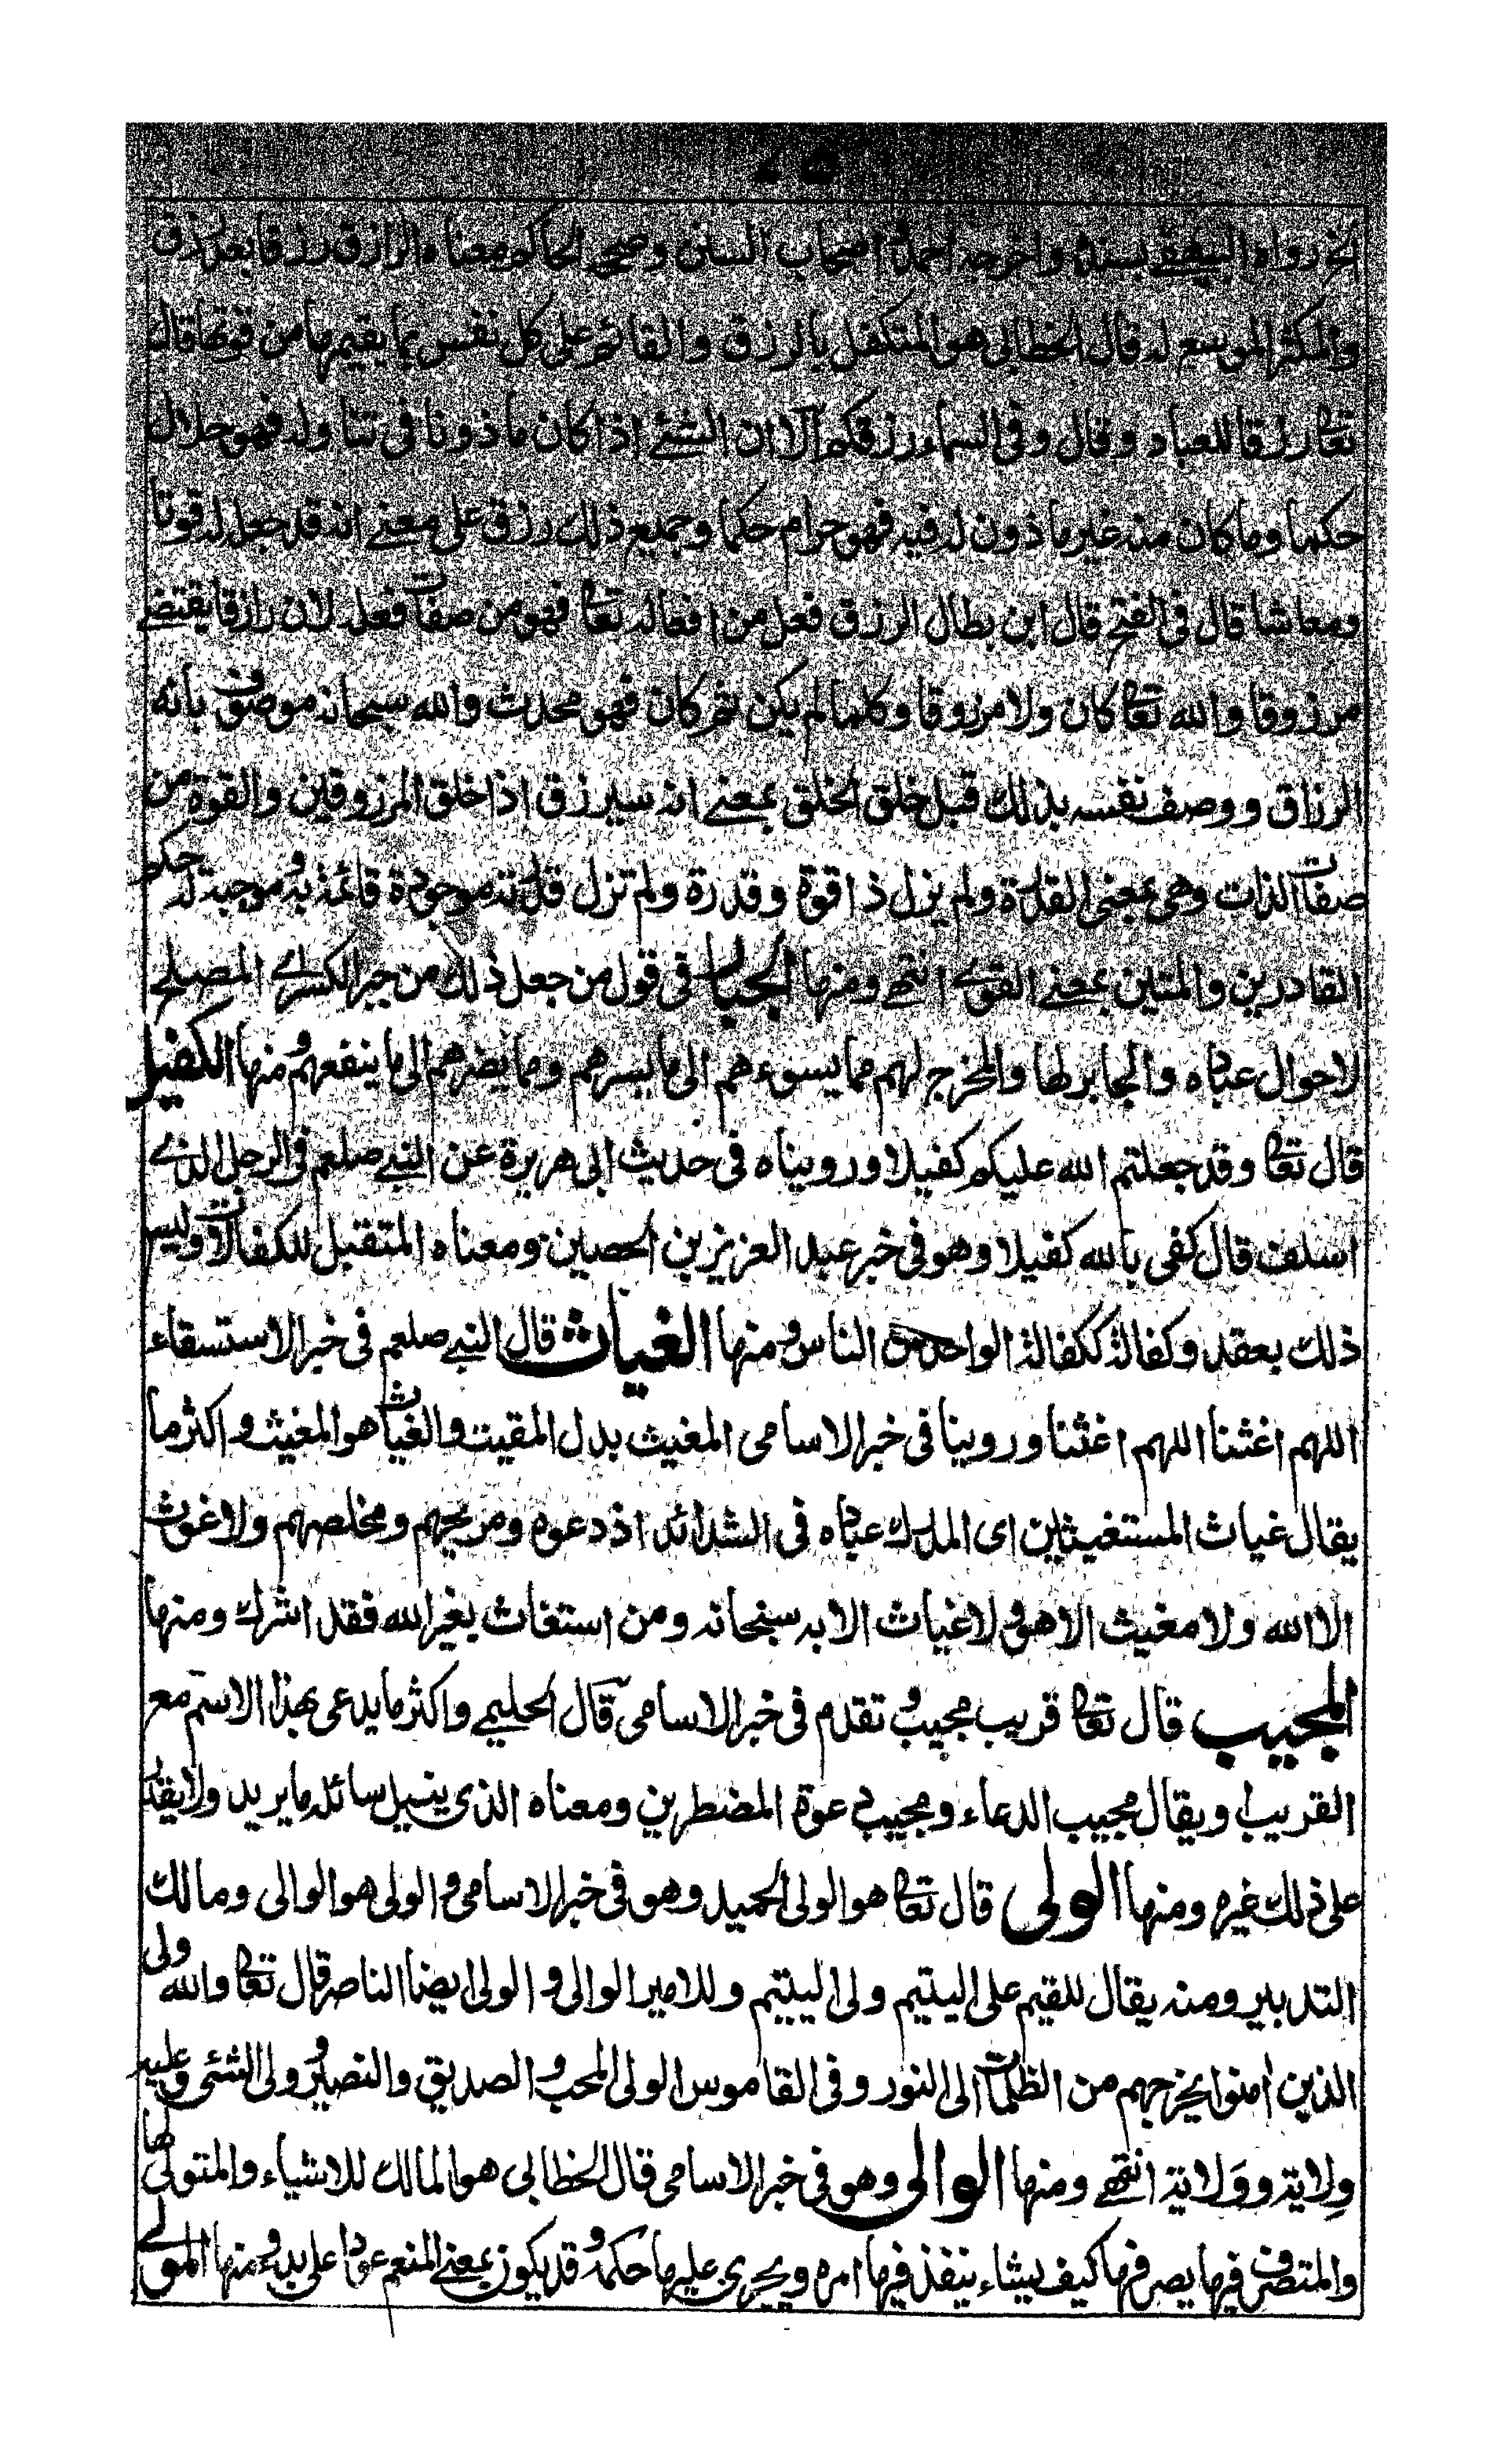 الخ رواه البيهقي بسنده واخرجه احمد و اصحاب السنن وصححه الحاكم ومعناه الرازق رزقا بعد رزق
والمكثر الموسع له قال الخطابي هو المتكفل بالرزق والقائم على كل نفس بما يقيمها من قوتها قال
تعالى رزقا للعباد وقال وفي السماء رزقكم الا ان الشئ اذا كان ماذونا في تناوله فهو حلال
حكما وما كان منه غير ماذون له فيه فهو حرام حكما وجميع ذلك رزق على معنے انه قد جعل له قوتا
ومعاشا قال في الفتح قال ابن بطال الرزق فعل من افعاله تعالى فهو من صفات فعله لان رازقا يقتضے
مرزوقا والله تعالى كان ولا مرزوق وكلما لم يكن ثم كان فهو محدث والله سبحانه موصوف بانه
الرزاق ووصف نفسه بذلك قبل خلق الخلق بمعنے انه سيرزق اذا خلق المرزوقين والقوة من
صفات الذات وهي بمعنى القدرة ولم يزل ذا قوة وقدرة ولم تزل قدرته موجودة قائمة به وموجبة له حكم
القادرين والمتين بمعنے القوے انتهے ومنها الجبار في قول من جعل ذلك من جبر الكسر اے المصلح
لاحوال عباده والجابر لها والمخرج لهم مما يسوءهم الى ما يسرهم وما يضرهم الى ما ينفعهم ومنها الكفيل
قال تعالى وقد جعلتم الله عليكم كفيلا ورويناه في حديث ابي هريرة عن النبے صلعم في الرجل الذے
اسلف قال كفى بالله كفيلا وهو في خبر عبد العزيز بن الحصين ومعناه المتقبل للكفالات وليس
ذلك بعقد وكفالة ككفالة الواحد من الناس ومنها الغياث قال النبے صلعم في خبر الاستسقاء
اللهم اغثنا اللهم اغثنا وروينا في خبر الاسامي المغيث بدل المقيت والغياث هو المغيث واكثر ما
يقال غياث المستغيثين اي المدرك عباده في الشدائد اذ دعوه ومريحهم ومخلصهم ولا غوث
الا الله ولا مغيث الا هو ولا غياث الا به سبحانه ومن استغاث بغير الله فقد اشرك ومنها
المجيب قال تعالى قريب مجيب وتقدم في خبر الاسامي قال الحليمے واكثر ما يدعى بهذا الاسم مع
القريب ويقال مجيب الدعاء ومجيب دعوة المضطرين ومعناه الذي ينيل سائله ما يريد ولا يقدر
على ذلك غيره ومنها الولى قال تعالى هو الولى الحميد وهو في خبر الاسامي والولى هو الوالى ومالك
التدبير ومنه يقال للقيم على اليتيم ولى اليتيم وللامير الوالى والولى ايضا الناصر قال تعالى والله ولى
الذين امنوا يخرجهم من الظلمات الى النور وفي القاموس الولى المحب والصديق والنصير وولى الشئ وعليه
وِلاية ووَلاية انتهے ومنها الوالى وهو في خبر الاسامي قال الخطابي هو المالك للاشياء والمتولى لها
والمتصرف فيها يصرفها كيف يشاء ينفذ فيها امره ويجرى عليها حكمه وقد يكون بمعنے المنعم عودا على بدء ومنها المولے